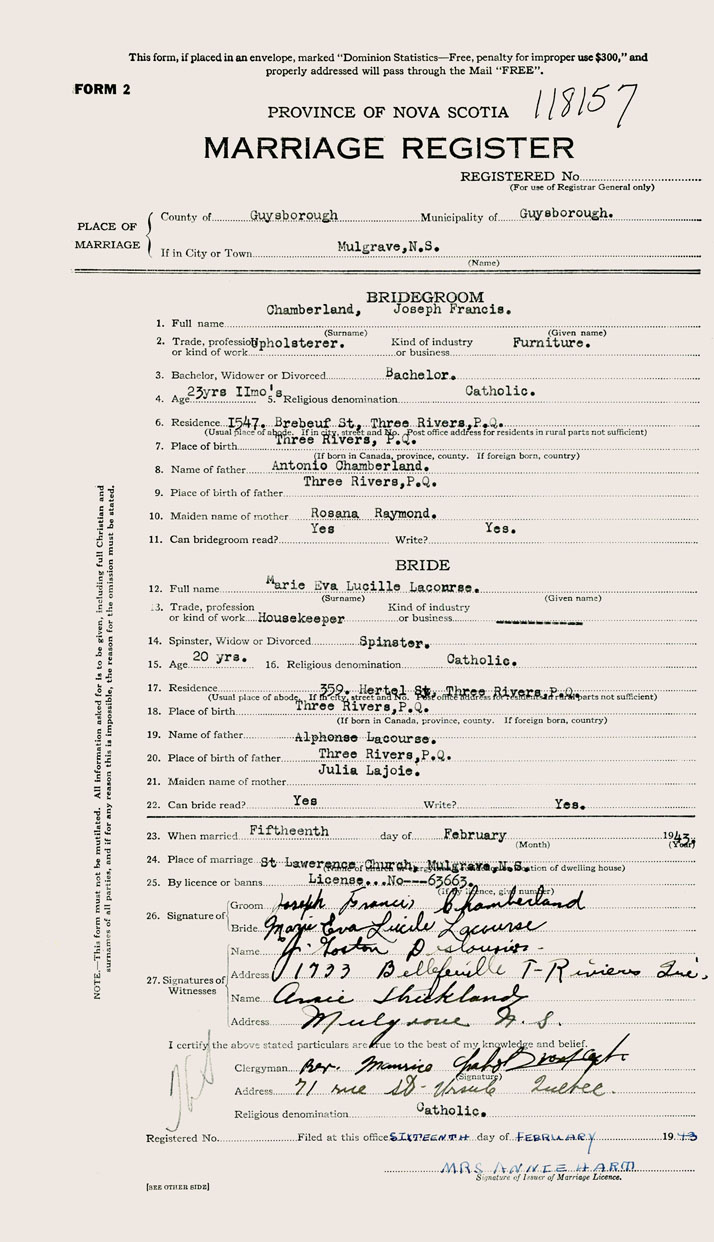 This form, if placed in an envelope, marked "Dominion Statistics—Free, penalty for improper use $300," and
properly addressed will pass through the Mail "FREE".
FORM 2
118157
PROVINCE OF NOVA SCOTIA
MARRIAGE REGISTER
REGISTERED No.
(For use of Registrar General only)
PLACE OF MARRIAGE
County of Guysborough Municipality of Guysborough.
If in City or Town Mulgrave,N.S.
(Name)
BRIDEGROOM
Chamberland, Joseph Francis.
1. Full name
(Surname) (Given name)
2. Trade, profession or kind of work Upholsterer. Kind of industry or business Furniture.
3. Bachelor, Widower or Divorced Bachelor.
4. Age 23yrs IImo's 5. Religious denomination Catholic.
6. Residence I547. Brebeuf St, Three Rivers,P.Q.
(Usual place of abode. If in city, street and No. Post office address for residents in rural parts not sufficient)
7. Place of birth Three Rivers, P.Q.
(If born in Canada, province, county. If foreign born, country)
8. Name of father Antonio Chamberland.
9. Place of birth of father Three Rivers,P.Q.
10. Maiden name of mother Rosana Raymond.
11. Can bridegroom read? Yes Write? Yes.
BRIDE
12. Full name Marie Eva Lucille Lacourse.
(Surname) (Given name)
13. Trade, profession or kind of work Housekeeper Kind of industry or business
14. Spinster, Widow or Divorced Spinster.
15. Age 20 yrs. 16. Religious denomination Catholic.
17. Residence 359. Hertel St, Three Rivers,P.Q.
(Usual place of abode. If in city, street and No. Post office address for residents in rural parts not sufficient)
18. Place of birth Three Rivers,P.Q.
(If born in Canada, province, county. If foreign born, country)
19. Name of father Alphonse Lacourse.
20. Place of birth of father Three Rivers,P.Q.
21. Maiden name of mother Julia Lajoie.
22. Can bride read? Yes Write? Yes.
23. When married Fifteenth day of February 1943,
(Month) (Year)
24. Place of marriage St Lawerence Church, Mulgrave,N.S.
25. By licence or banns License...No---63663.
(If by licence, give number)
26. Signature of
Groom Joseph Francis Chamberland
Bride Marie Eva Lucile Lacourse
27. Signatures of Witnesses
Name
Address 1733 Bellefeuille T-Rivieres Que.
Name Annie Strickland
Address Mulgrave N.S.
I certify the above stated particulars are true to the best of my knowledge and belief.
Clergyman Rev. Maurice
(Signature)
Address 71 rue St-Ursule Quebec.
Religious denomination Catholic.
Registered No. Filed at this office SIXTEENTH day of FEBRUARY 1943
MRS ANNIE HART
Signature of Issuer of Marriage Licence.
[SEE OTHER SIDE]
NOTE.—This form must not be mutilated. All information asked for is to be given, including full Christian and
surnames of all parties, and if for any reason this is impossible, the reason for the omission must be stated.